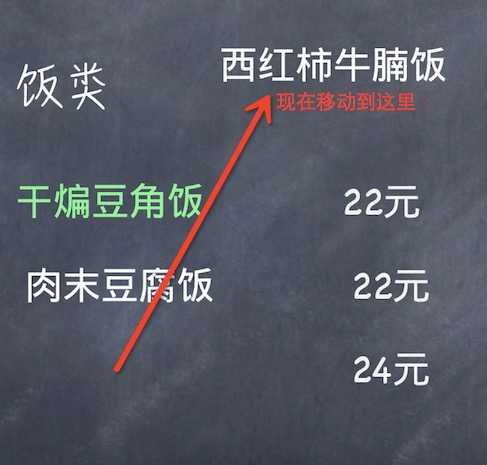 西红柿牛腩饭
饭类
现在移动到这里
干煸豆角饭 22元
肉末豆腐饭 22元
24元